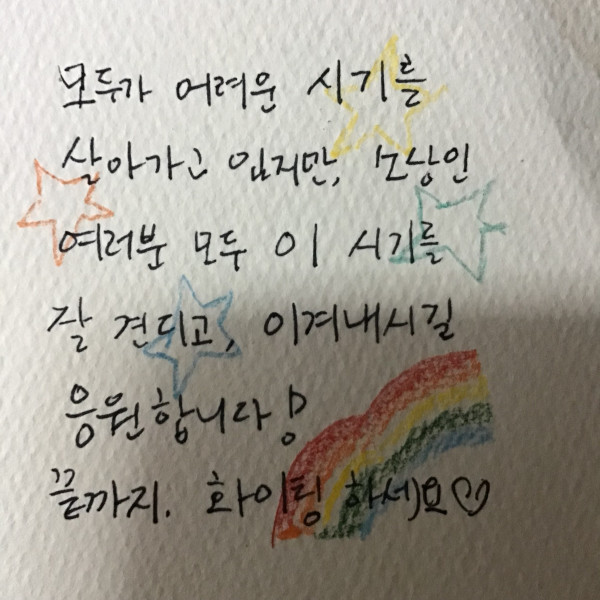 모두가 어려운 시기를
살아가고 있지만, 소상인
여러분 모두 이 시기를
잘 견디고, 이겨내시길
응원합니다!
끝까지. 화이팅 하세요♡